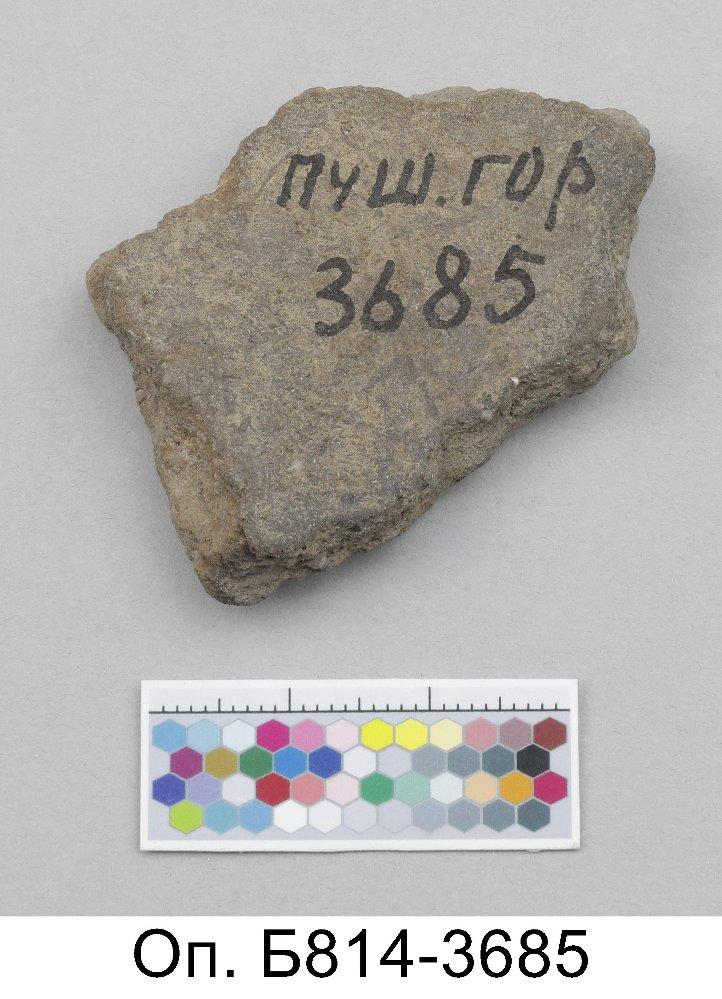 пуш.гор
3685
Оп. Б814-3685